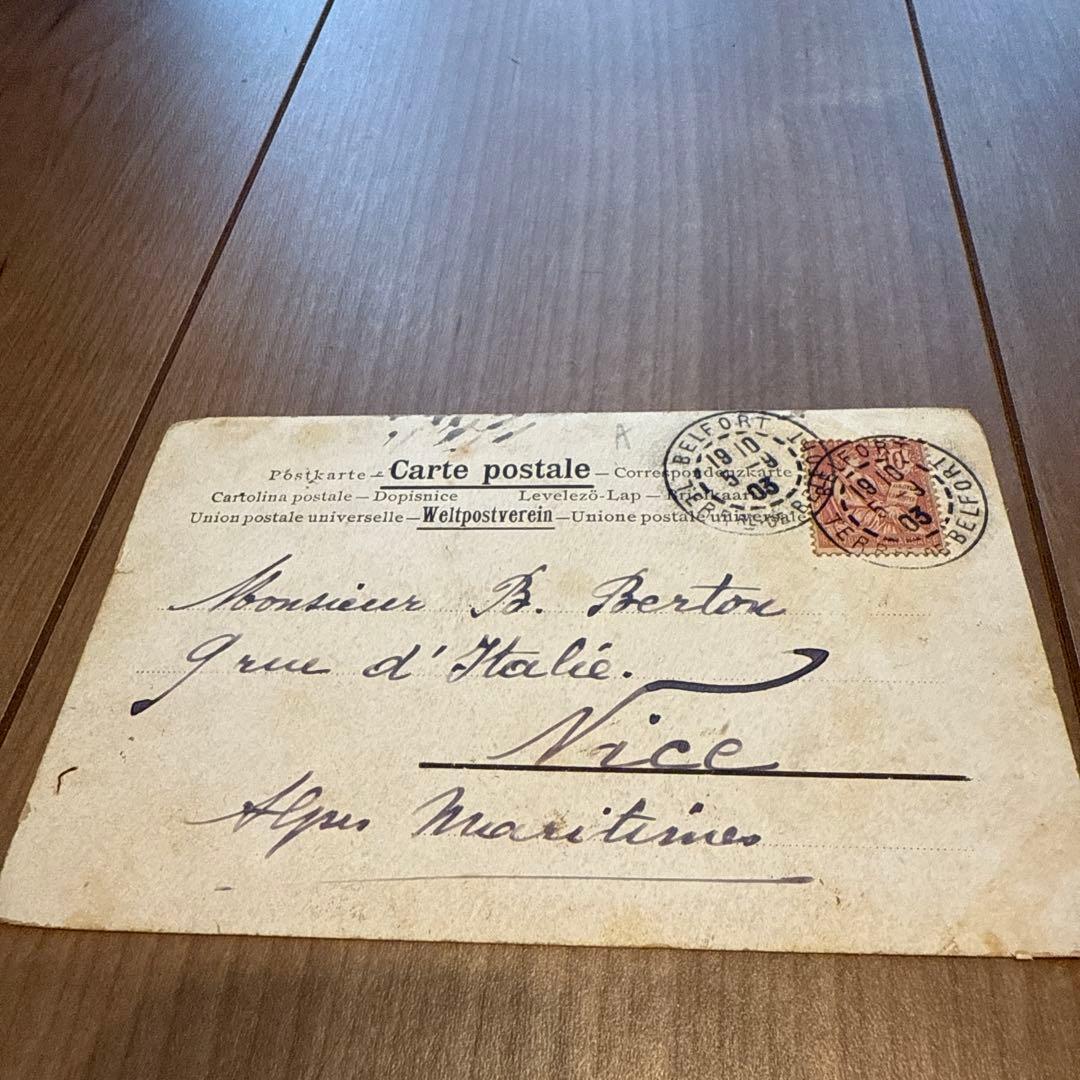 Postkarte — Carte postale — Correspondenzkarte
Cartolina postale — Dopisnice Levelezö-Lap — Briefkaart
Union postale universelle — Weltpostverein — Unione postale universale
BELFORT
19 10
5 - 9
03
BELFORT
19 10
5 - 9
03
BELFORT
Monsieur B. Berton
9 rue d'Italie.
Nice
Alpes Maritimes